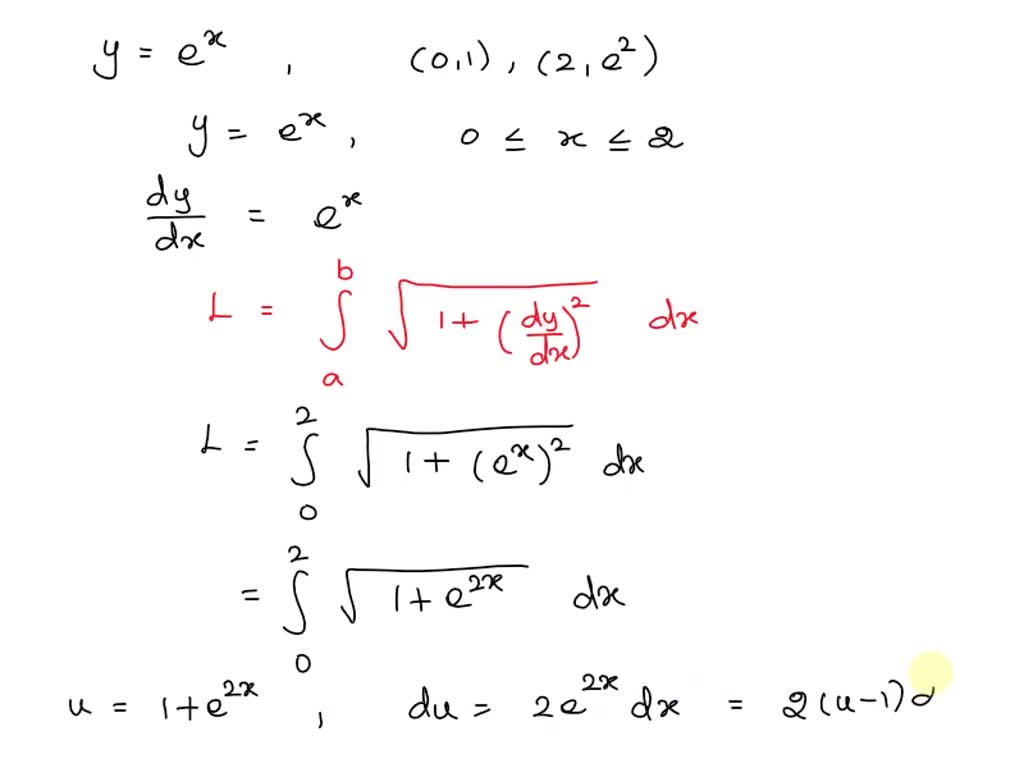 y = eˣ , (0,1), (2, e²)
y = eˣ, 0 ≤ x ≤ 2
dy/dx = eˣ
L = ∫ₐᵇ √(1 + (dy/dx)²) dx
L = ∫₀² √(1 + (eˣ)²) dx
= ∫₀² √(1 + e²ˣ) dx
u = 1+e²ˣ , du = 2e²ˣ dx = 2(u-1)d